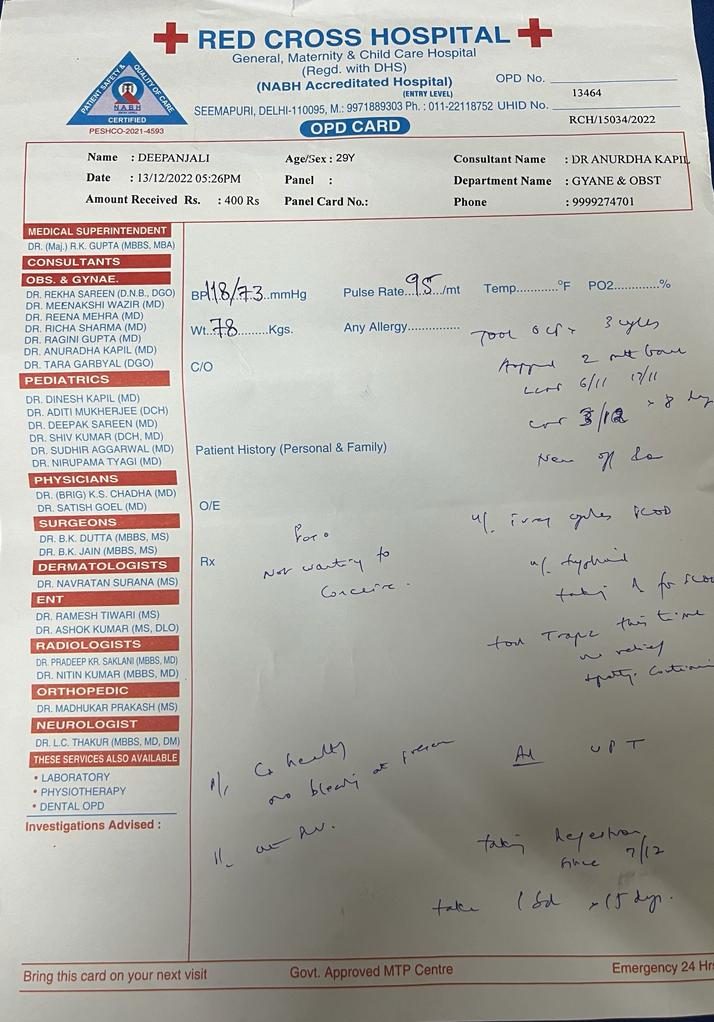 RED CROSS HOSPITAL
General, Maternity & Child Care Hospital
(Regd. with DHS)
(NABH Accredited Hospital)
(ENTRY LEVEL)
SEEMAPURI, DELHI-110095, M.: 9971889303 Ph. : 011-22118752
OPD No. 13464
UHID No. RCH/15034/2022
PATIENT SAFETY & QUALITY OF CARE
NABH
CERTIFIED
PESHCO-2021-4593
OPD CARD
Name : DEEPANJALI Age/Sex : 29Y Consultant Name : DR ANURDHA KAPIL
Date : 13/12/2022 05:26PM Panel : Department Name : GYANE & OBST
Amount Received Rs. : 400 Rs Panel Card No.: Phone : 9999274701
MEDICAL SUPERINTENDENT
DR. (Maj.) R.K. GUPTA (MBBS, MBA)
CONSULTANTS
OBS. & GYNAE.
DR. REKHA SAREEN (D.N.B., DGO)
DR. MEENAKSHI WAZIR (MD)
DR. REENA MEHRA (MD)
DR. RICHA SHARMA (MD)
DR. RAGINI GUPTA (MD)
DR. ANURADHA KAPIL (MD)
DR. TARA GARBYAL (DGO)
PEDIATRICS
DR. DINESH KAPIL (MD)
DR. ADITI MUKHERJEE (DCH)
DR. DEEPAK SAREEN (MD)
DR. SHIV KUMAR (DCH, MD)
DR. SUDHIR AGGARWAL (MD)
DR. NIRUPAMA TYAGI (MD)
PHYSICIANS
DR. (BRIG) K.S. CHADHA (MD)
DR. SATISH GOEL (MD)
SURGEONS
DR. B.K. DUTTA (MBBS, MS)
DR. B.K. JAIN (MBBS, MS)
DERMATOLOGISTS
DR. NAVRATAN SURANA (MS)
ENT
DR. RAMESH TIWARI (MS)
DR. ASHOK KUMAR (MS, DLO)
RADIOLOGISTS
DR. PRADEEP KR. SAKLANI (MBBS, MD)
DR. NITIN KUMAR (MBBS, MD)
ORTHOPEDIC
DR. MADHUKAR PRAKASH (MS)
NEUROLOGIST
DR. L.C. THAKUR (MBBS, MD, DM)
THESE SERVICES ALSO AVAILABLE
• LABORATORY
• PHYSIOTHERAPY
• DENTAL OPD
Investigations Advised :
BP 118/73 mmHg Pulse Rate 95 /mt Temp............°F PO2.............%
Wt. 78 Kgs. Any Allergy..............
C/O
Patient History (Personal & Family)
O/E
Rx
3 cycles
2 mth
6/11 17/11
3/12 x 8
PCOD
Not wanting to
Conceive.
taking for PCOD
took this time
no relief
healthy
no bleeding at present
UPT
taking
since 7/12
take 1 x 15 days.
Bring this card on your next visit Govt. Approved MTP Centre Emergency 24 Hrs